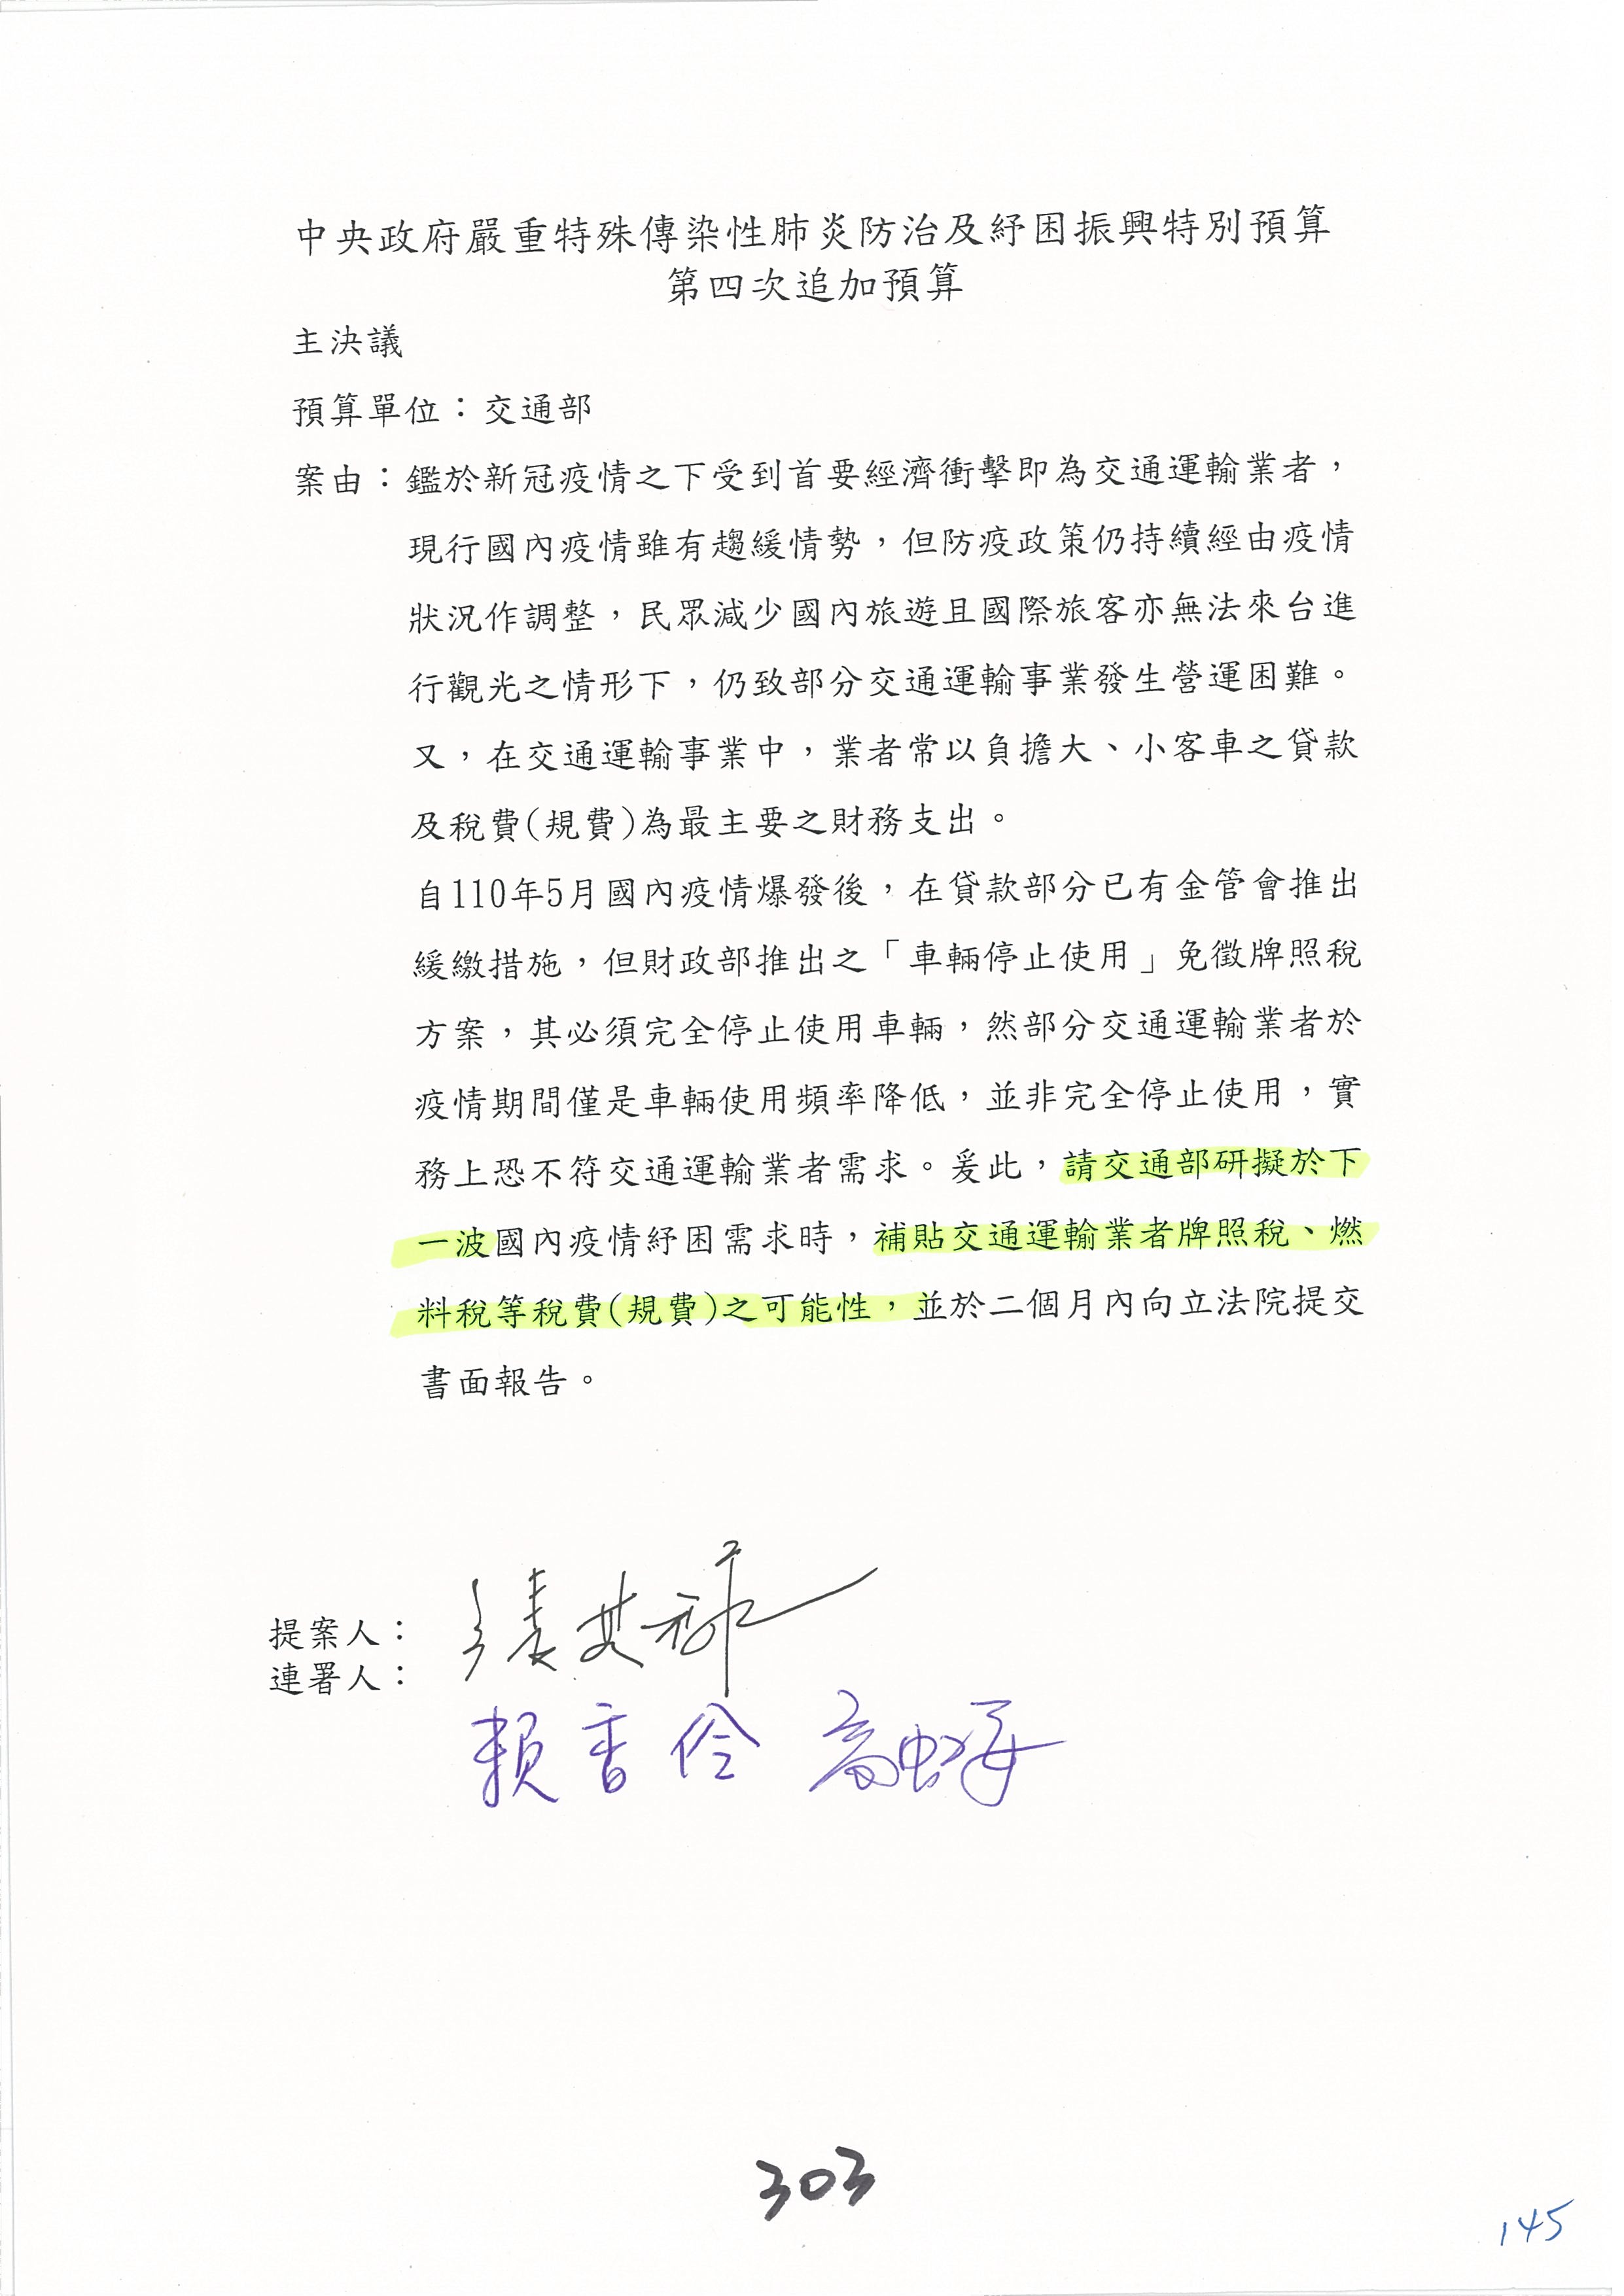 中央政府嚴重特殊傳染性肺炎防治及紓困振興特別預算
第四次追加預算
主決議
預算單位：交通部
案由：鑑於新冠疫情之下受到首要經濟衝擊即為交通運輸業者，
現行國內疫情雖有趨緩情勢，但防疫政策仍持續經由疫情
狀況作調整，民眾減少國內旅遊且國際旅客亦無法來台進
行觀光之情形下，仍致部分交通運輸事業發生營運困難。
又，在交通運輸事業中，業者常以負擔大、小客車之貸款
及稅費(規費)為最主要之財務支出。
自110年5月國內疫情爆發後，在貸款部分已有金管會推出
緩繳措施，但財政部推出之「車輛停止使用」免徵牌照稅
方案，其必須完全停止使用車輛，然部分交通運輸業者於
疫情期間僅是車輛使用頻率降低，並非完全停止使用，實
務上恐不符交通運輸業者需求。爰此，請交通部研擬於下
一波國內疫情紓困需求時，補貼交通運輸業者牌照稅、燃
料稅等稅費(規費)之可能性，並於二個月內向立法院提交
書面報告。
提案人：張其祿
連署人：
賴香伶 高虹安
303
145